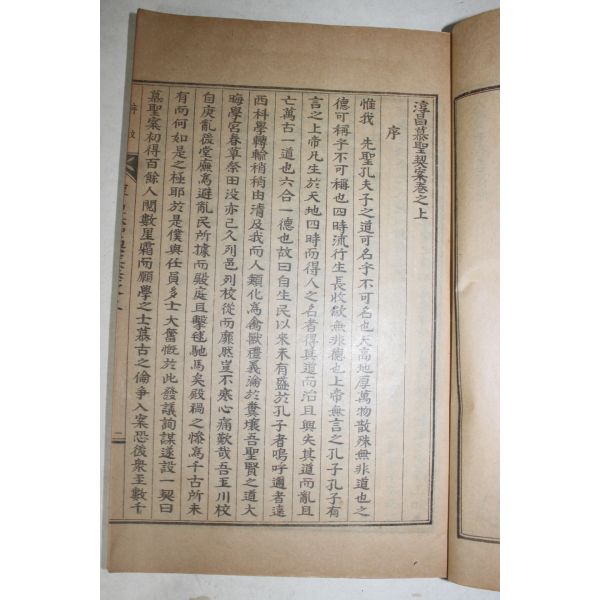 淳昌慕聖契案卷之上
序
惟我 先聖孔夫子之道可名乎不可名也天高地厚萬物散殊無非道也之
德可稱乎不可稱也四時流行生長收歛無非德也上帝無言之孔子孔子有
言之上帝凡生於天地四時而得人之名者得其道而治且興失其道而亂且
亡萬古一道也六合一德也故曰自生民以來未有盛於孔子者嗚呼邇者遠
西科學轉輸稍稍由清及我而人類化為禽獸禮義淪於糞壤吾聖賢之道大
晦學宮春草祭田沒亦已久列邑列校從而靡然豈不寒心痛歎哉吾玉川校
自庚亂後堂廡為避亂民所據而殿庭且擊毬馳馬矣殿禍之慘為千古所未
有而何如是之極耶於是僕與任員多士大奮慨於此發議詢謀遂設一契曰
慕聖案初得百餘人閱數星霜而願學之士慕古之倫爭入案恐後衆至數千
序文